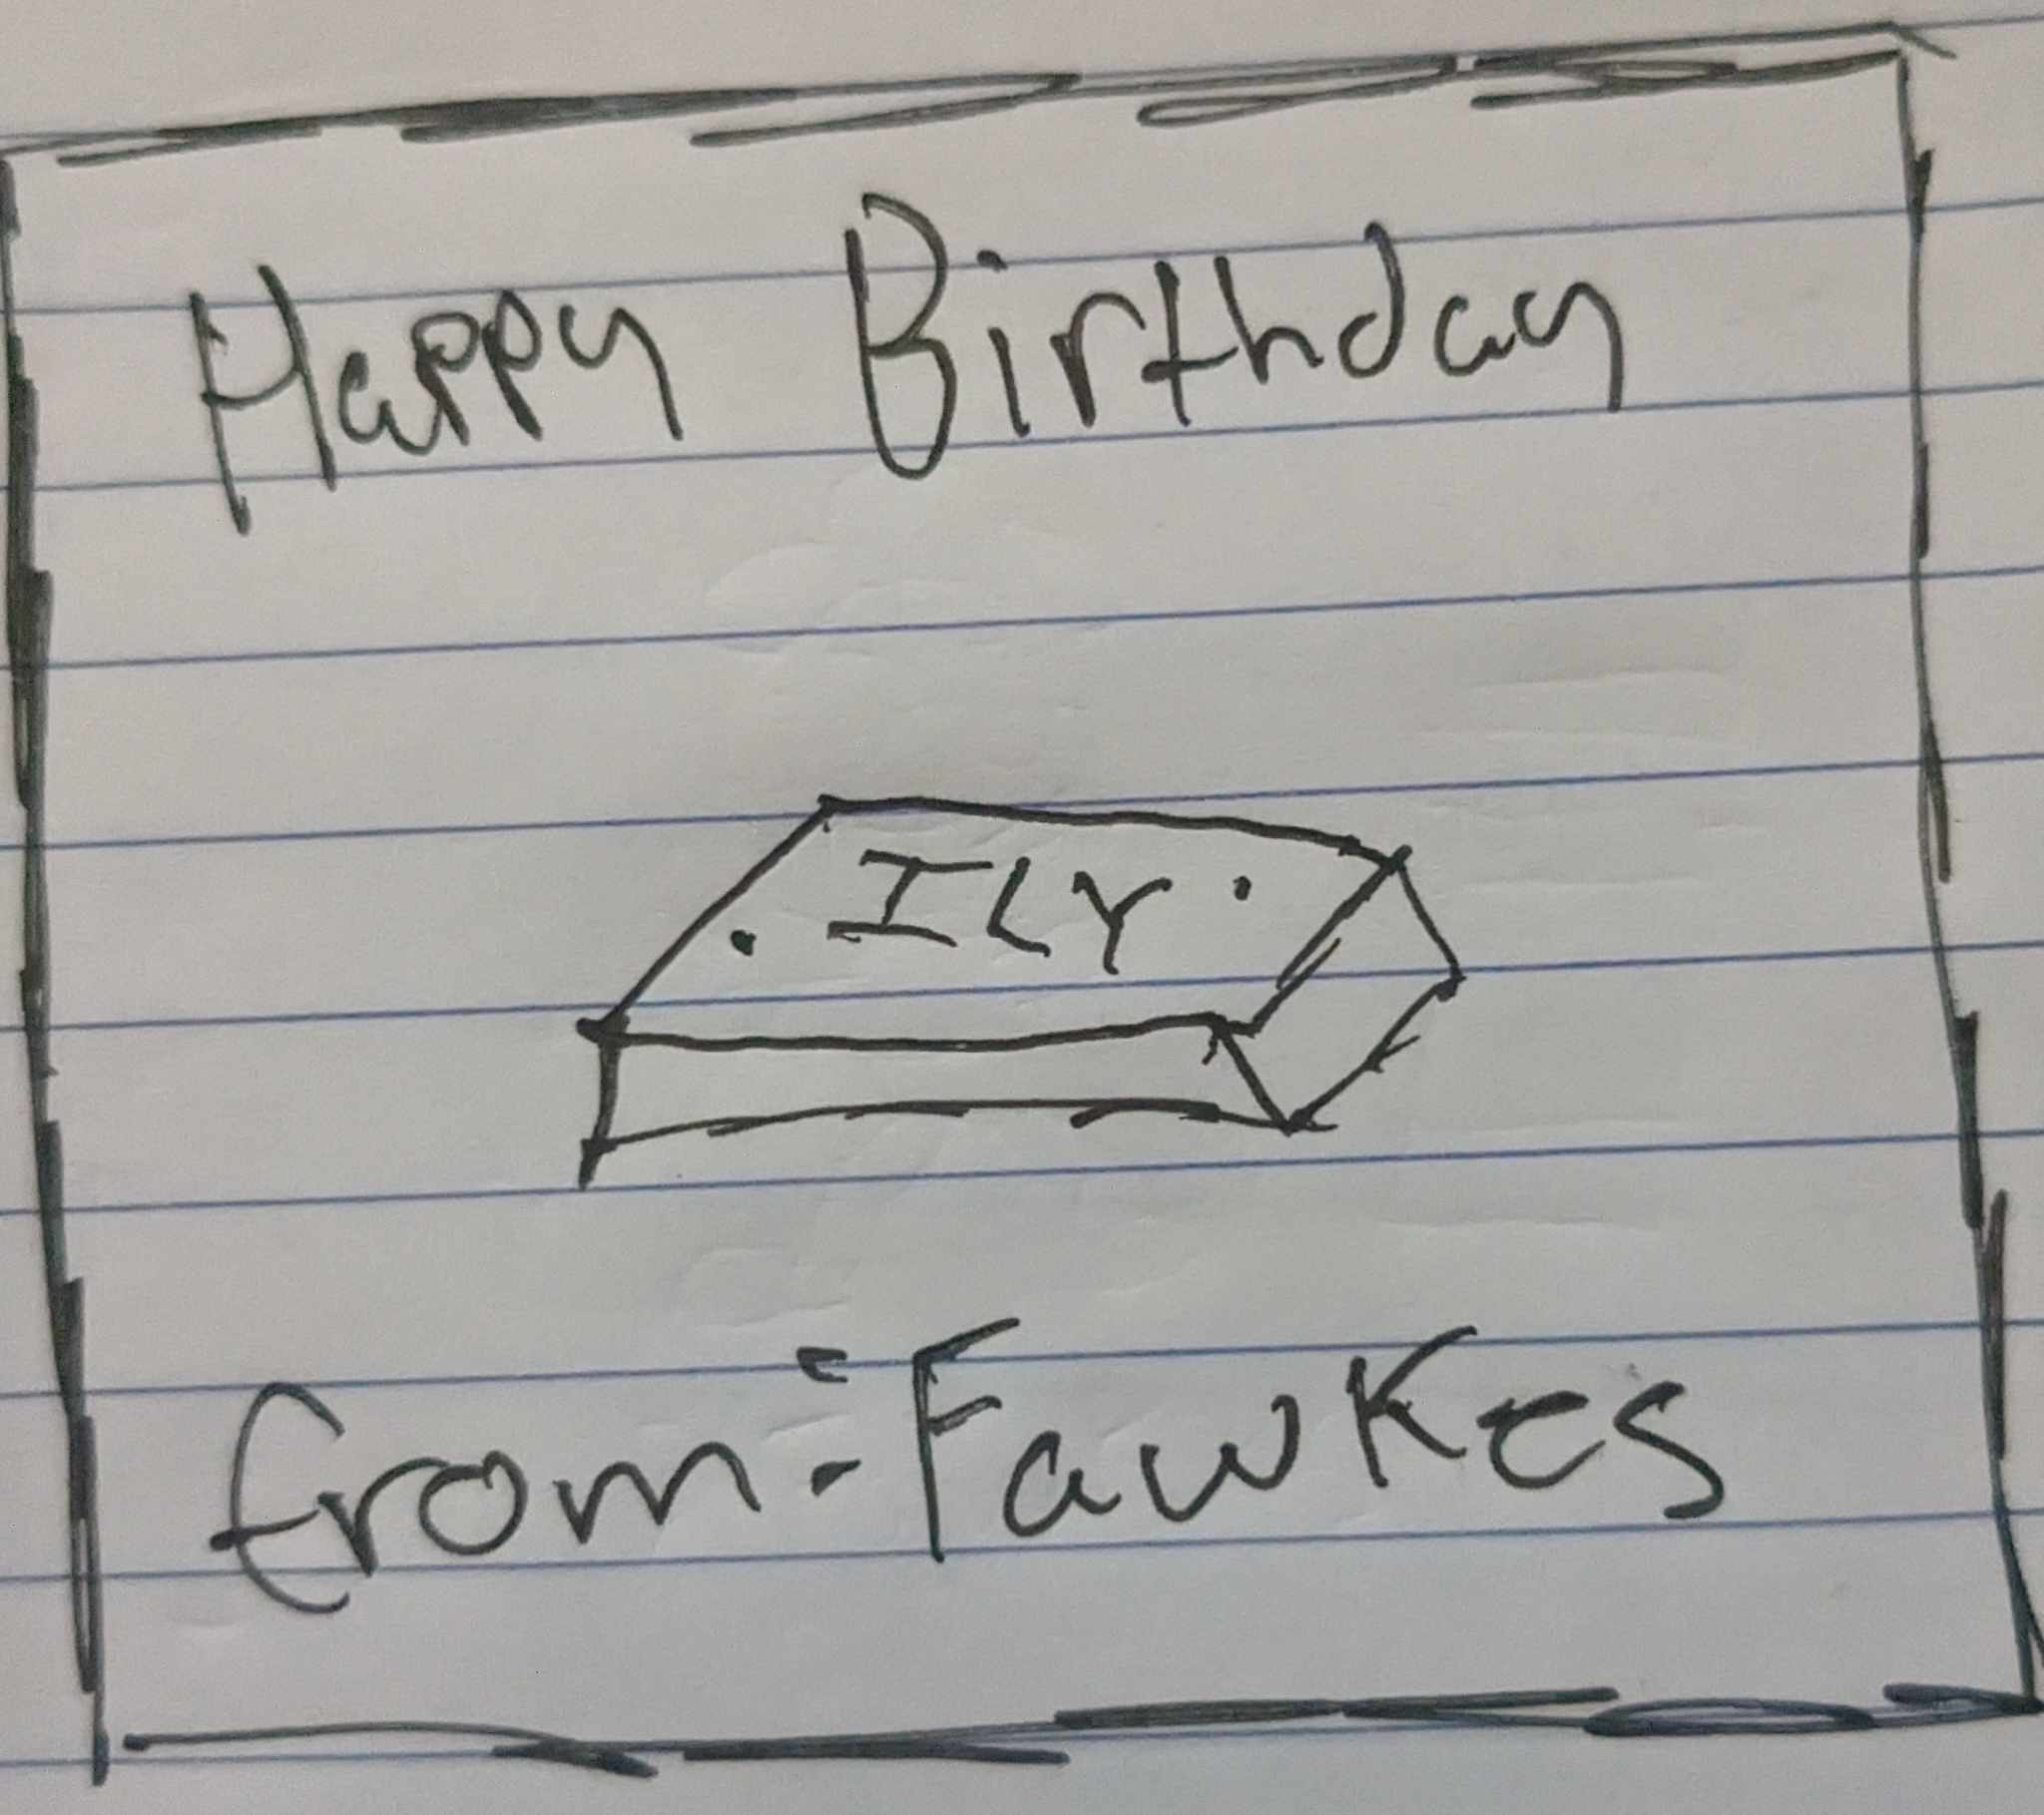 Happy Birthday
. ILY .
from: Fawkes